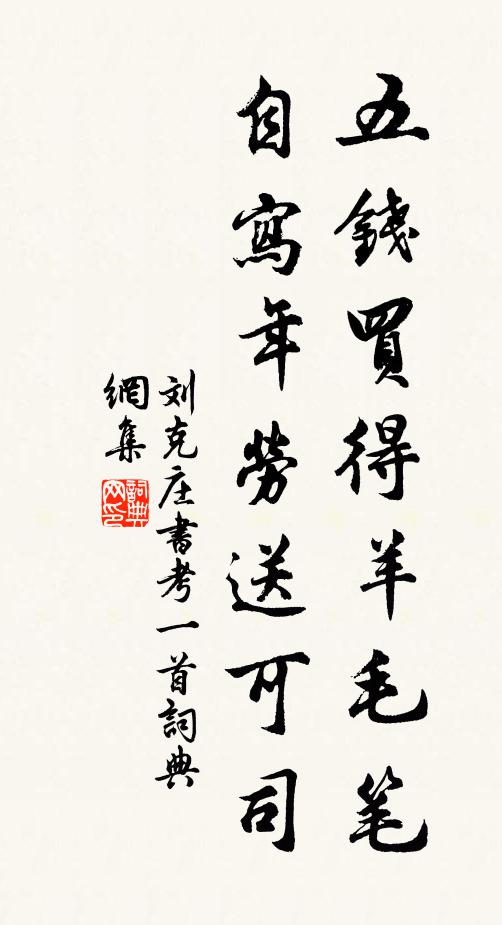 五錢買得羊毛笔
自寫年勞送可司
刘克庄書考一首詞典
網集
詞典
网印